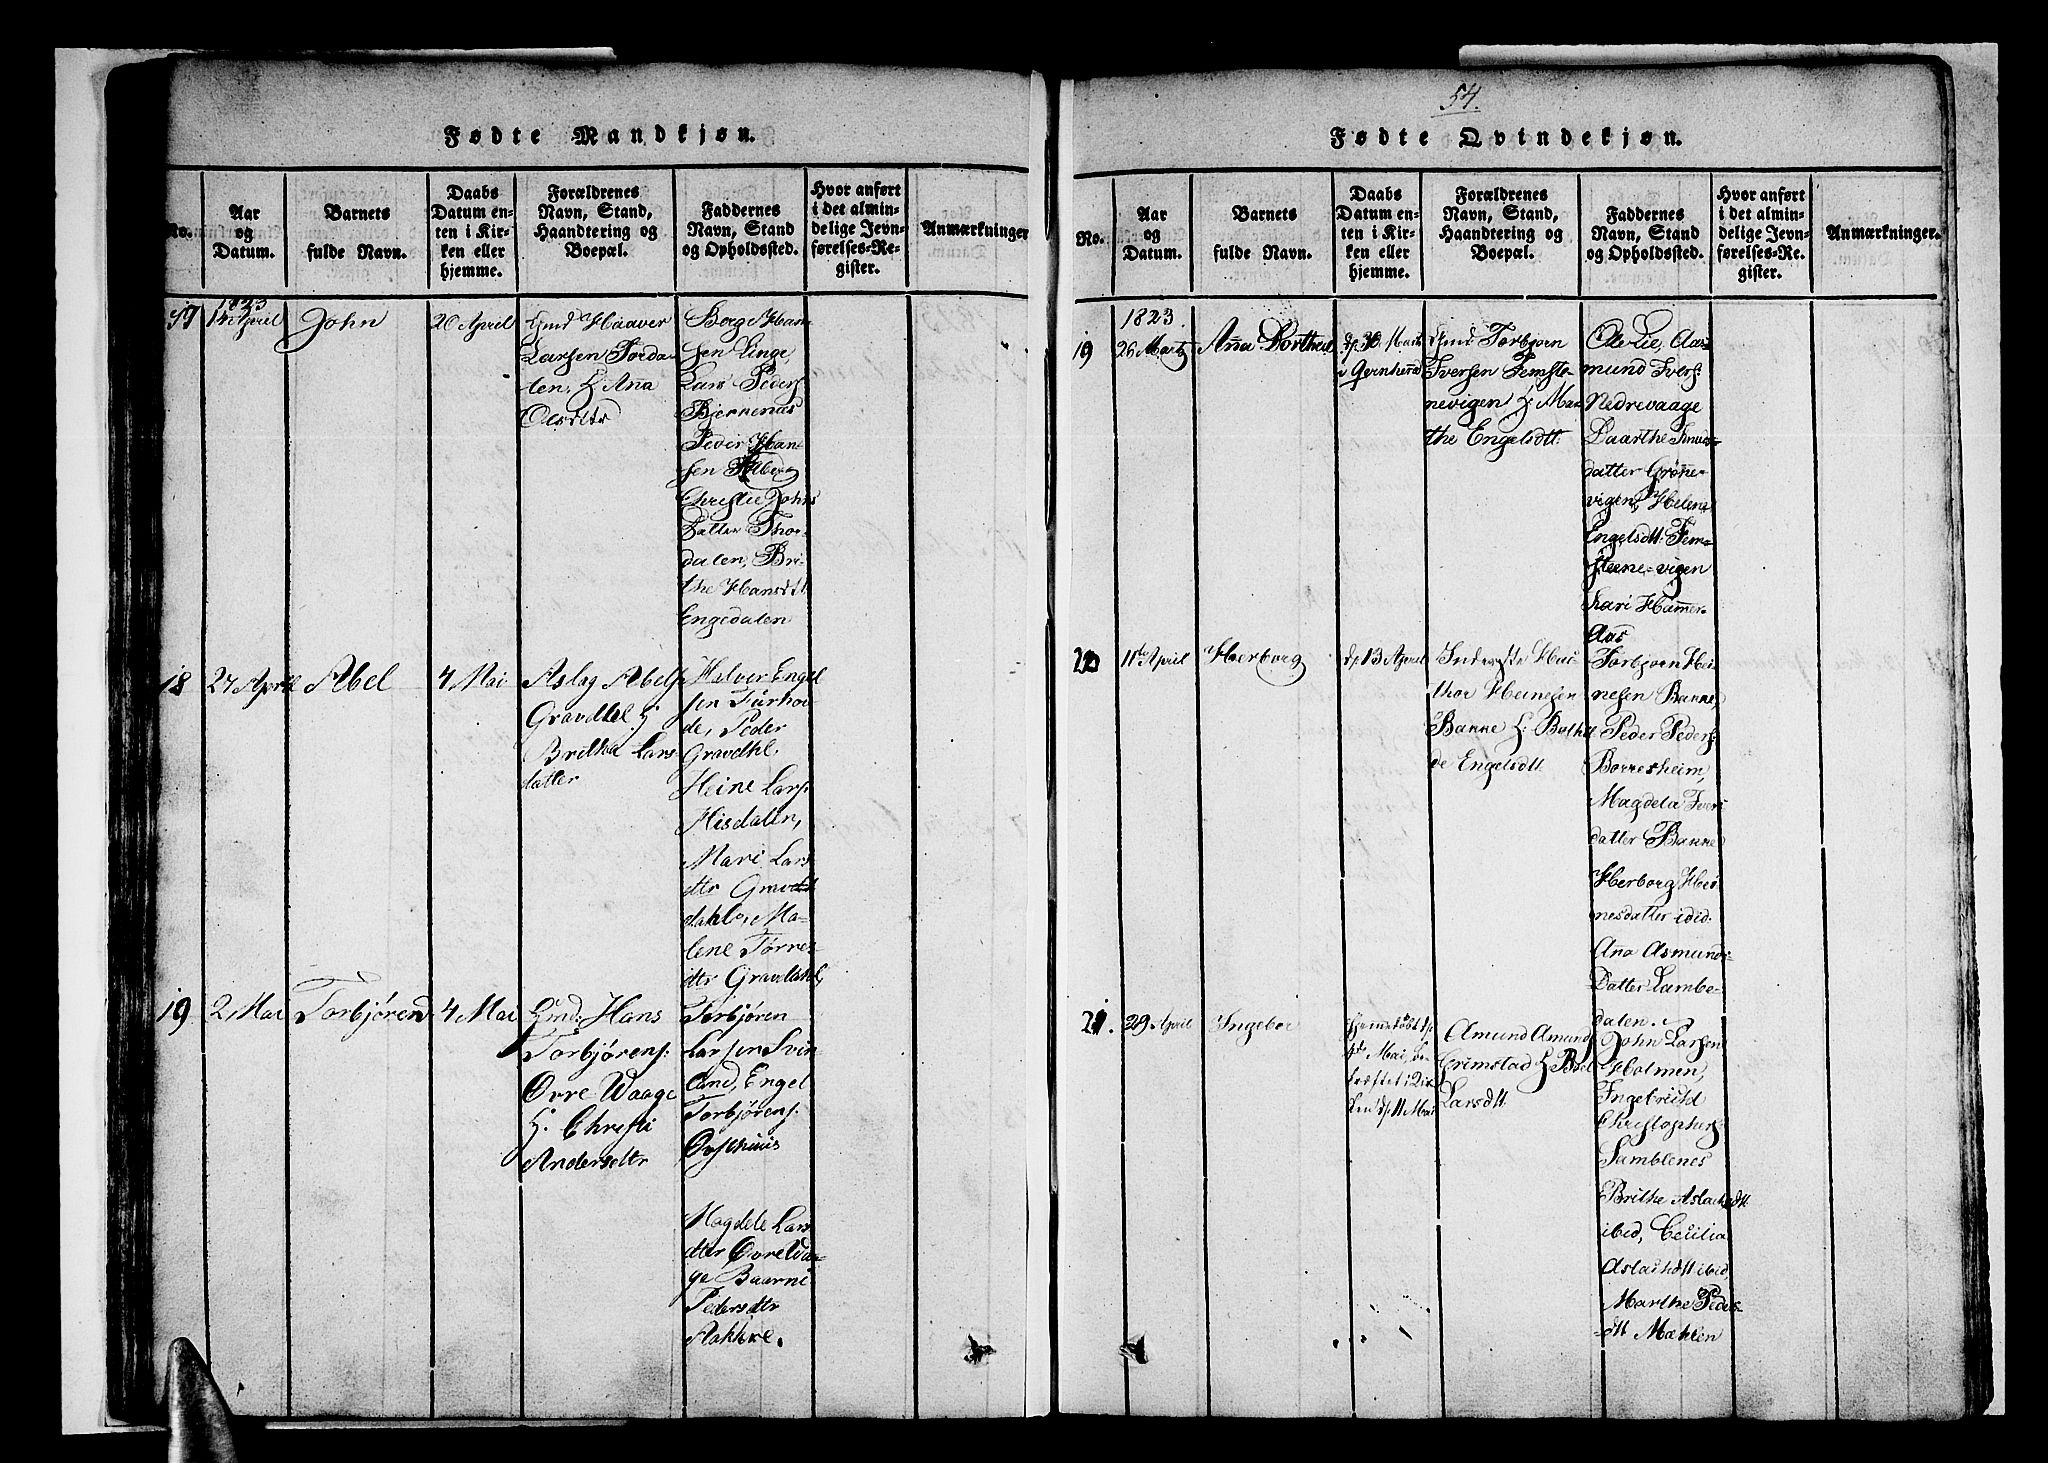 54.
Fødte Mandkjøn.
No.
Aar
og
Datum.
Barnets
fulde Navn.
Daabs
Datum en-
ten i Kir-
ken eller
hjemme.
Forældrenes
Navn, Stand,
Haandtering og
Boepæl.
Faddernes
Navn, Stand
og Opholdssted.
Hvor anført
i det almin-
delige Jevn-
førelses-Re-
gister.
Anmærkninger
17
1823
14 April
John
20 April
Gmd Haaver
Larsen Torda-
len, H. Ana
Olsdtr
Borge Han-
sen Linge,
Lars Peders
Bjernenæs
Peder Han-
sen
Christie Johns
Datter Thor-
dalen, Bri-
the Hansdtt
Engedalen
18
27 April
Abel
4 Mai
Aslag Abels
Gravdhl H
Britha Lars
datter
Halver Engel
sen Turhov-
de, Peder
Gravdhl.
Heine Lars.
Hisdalen,
Mari Lars
dtr Gravd
dahl, Ma-
lene Torres-
dtr Gravdahl,
19
2 Mai
Torbjøren
4 Mai
Gmd: Hans
Torbjørens:
Ovre Waage
H. Christi
Andersdtr
Torbjøren
Larsen Svin
land, Engel
Torbjørens:
Osthuus
Magdele Lars
dtr Ovre Va-
ge Baarni
Pedersdtr
Aakkre.
Fødte Qvindekjøn.
No.
Aar
og
Datum.
Barnets
fulde Navn.
Daabs
Datum en-
ten i Kir-
ken eller
hjemme.
Forældrenes
Navn, Stand,
Haandtering og
Boepæl.
Faddernes
Navn, Stand
og Opholdssted.
Hvor anført
i det almin-
delige Jevn-
førelses-Re-
gister.
Anmærkninger.
19
1823.
26 Martz
Anna Dorthea
dp. 30 Marts
Gmd Torbjoen
Iversen Femste-
nevigen H. Mar
the Engelsdtt.
Ole Lie, Aas
mund Ivers:
Nedrevaage
Daarthe Knuds-
datter Grøne-
vigen, Helene
Engelsdtt: Fem-
steene-vigen
Kari Hammer-
Aas
20
11te April
Herborg
dp 13 April
Inderste Hal
thor Heinesen
Banne H: Bothil
de Engelsdtt
Torbjoen Hei-
nesen Banne,
Peder Peders:
Borresheim,
Magdela Ivers
datter Banne
Herborg Hei
nesdatter ibid.
Ana Asmunds-
Datter Lambe-
dalen.
21.
29 April
Ingebor
Hjemdøbt d.
Mai, be-
kræftet i Kir
ken dp. 11 Mai
Amund Amund
Grimstad H Boel
Larsdtt
John Larsen
Holmen,
Ingebrictd
Christophers:
Samblenes
Brithe Aslachsdtt
ibid, Cecilia
Aslachsdtt ibid,
Marthe Peders-
dtt Mæhlen